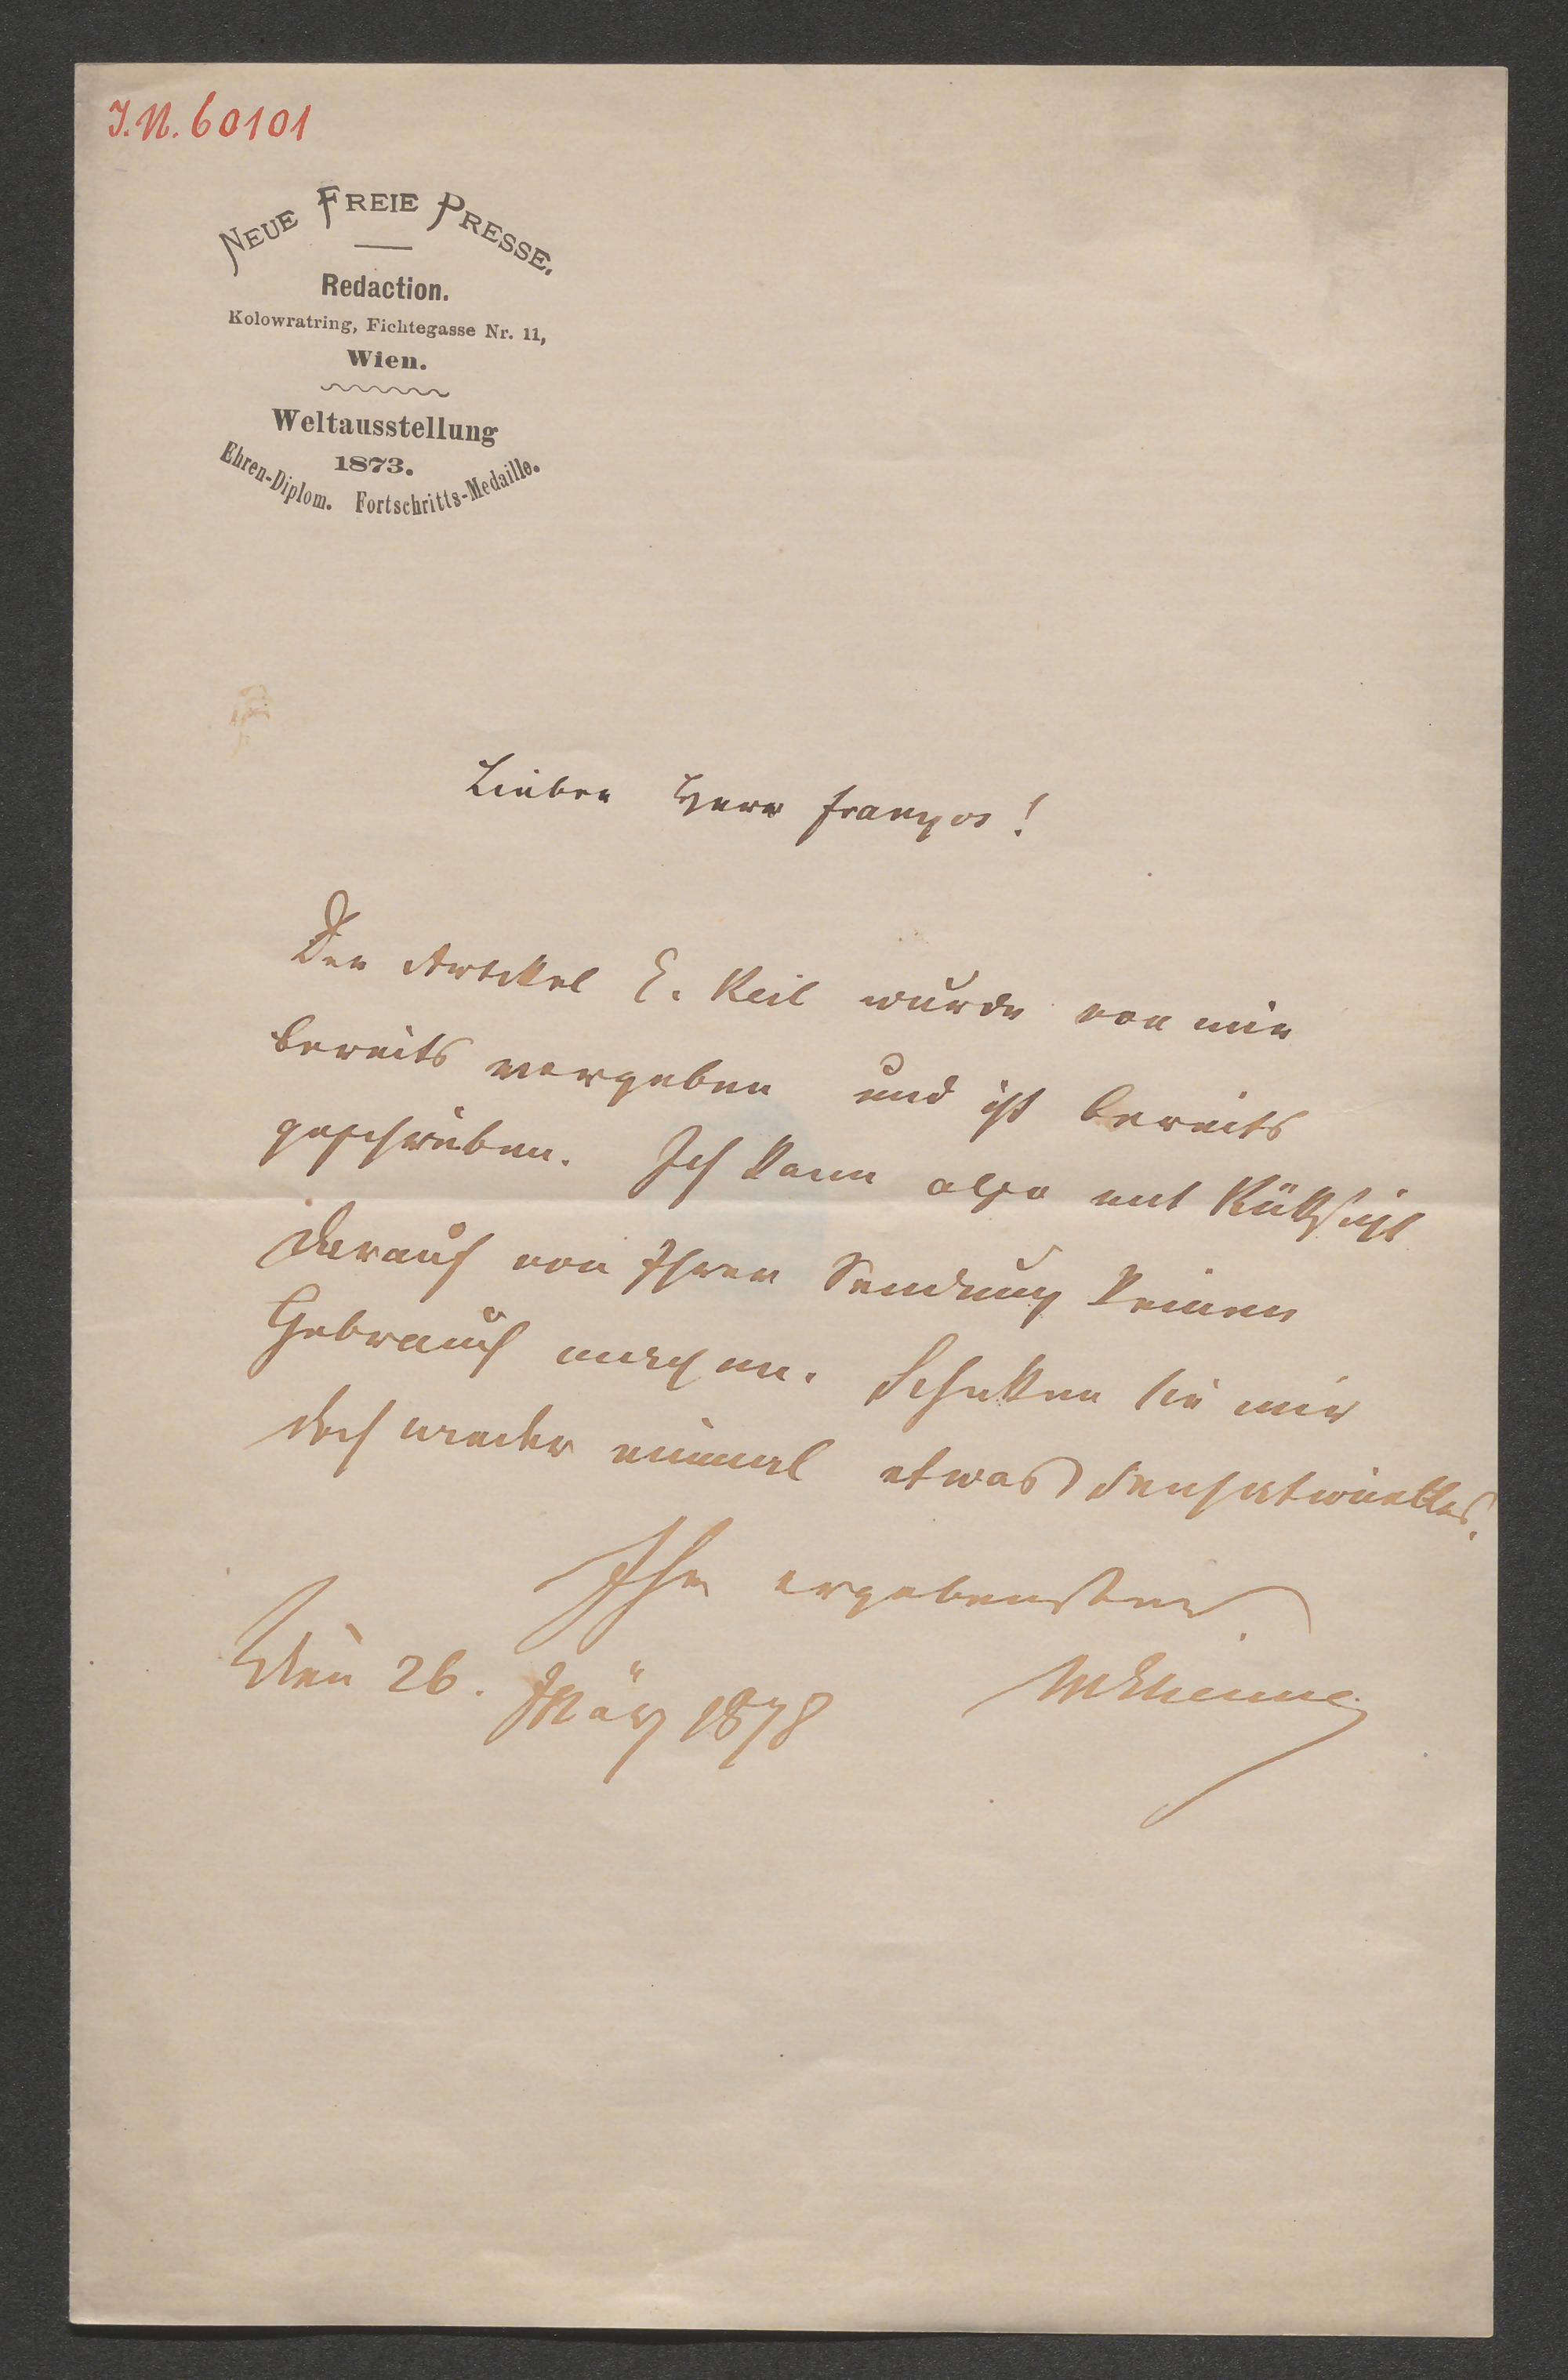 I.N. 60101
NEUE FREIE PRESSE.
Redaction.
Kolowratring, Fichtegasse Nr. 11,
Wien.
Weltausstellung
1873.
Ehren-Diplom. Fortschritts-Medaille.
Lieber Herr Franzos!
Der Artikel E. Keil wurde von mir
bereits vergeben und ist bereits
geschrieben. Ich kann also mit Rüksicht
darauf von Ihrer Sendung keinen
Gebrauch machen. Schiken Sie mir
doch wieder einmal etwas Sensationelles.
Ihr ergebenster
Wien 26. März 1878
MEtienne